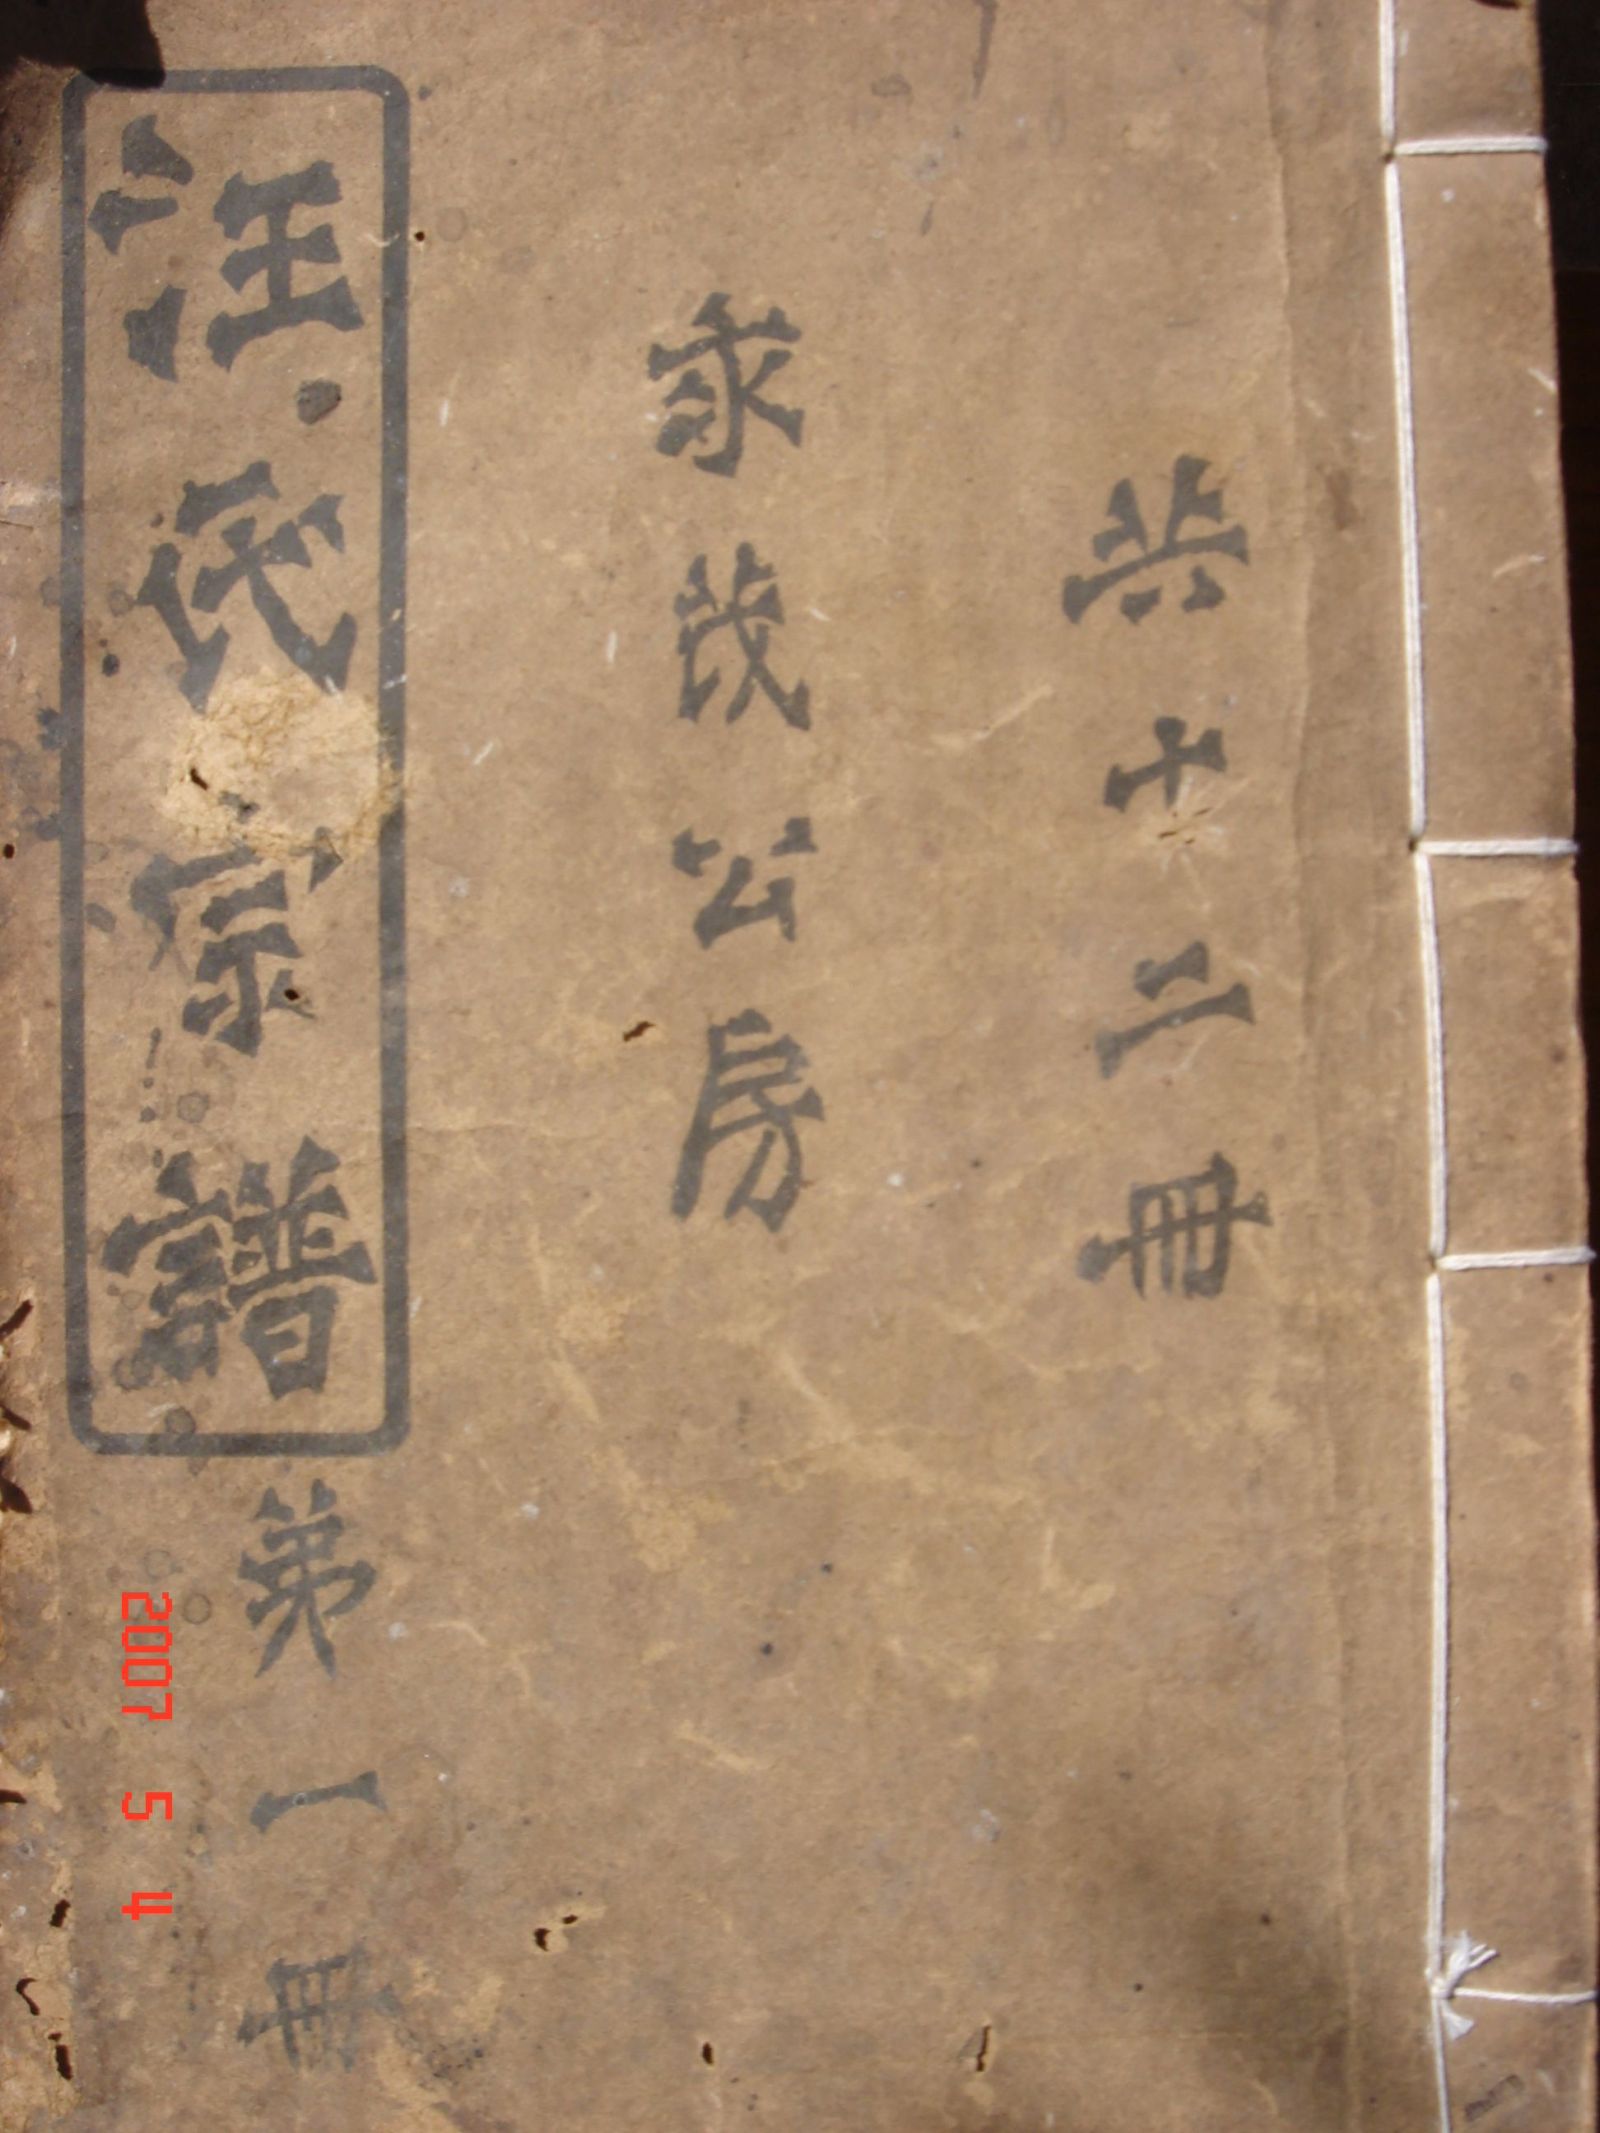 共十二冊
茂公房
汪氏宗譜
苐一冊
2007 5 4